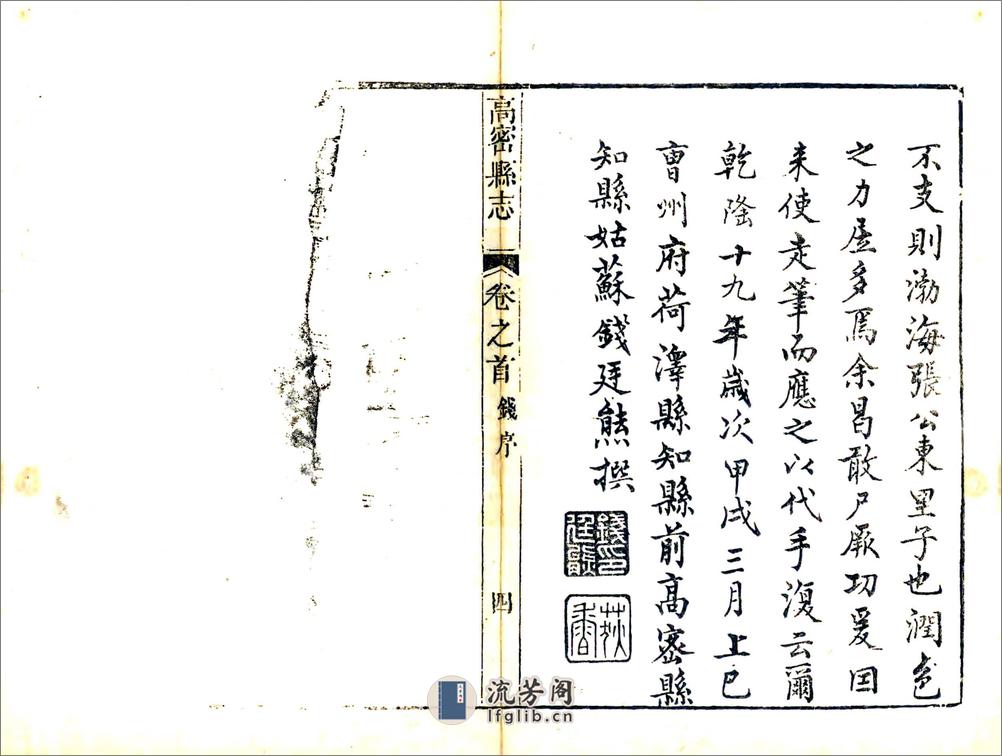 不支則渤海張公東里子也潤色
之力居多焉余曷敢尸厥功爰因
來使走筆而應之以代手復云爾
乾隆十九年歲次甲戌三月上巳
曹州府荷澤縣知縣前高密縣
知縣姑蘇錢廷熊撰
錢印廷熊
高密縣志
卷之首
錢序
四
流芳阁
lfglib.cn